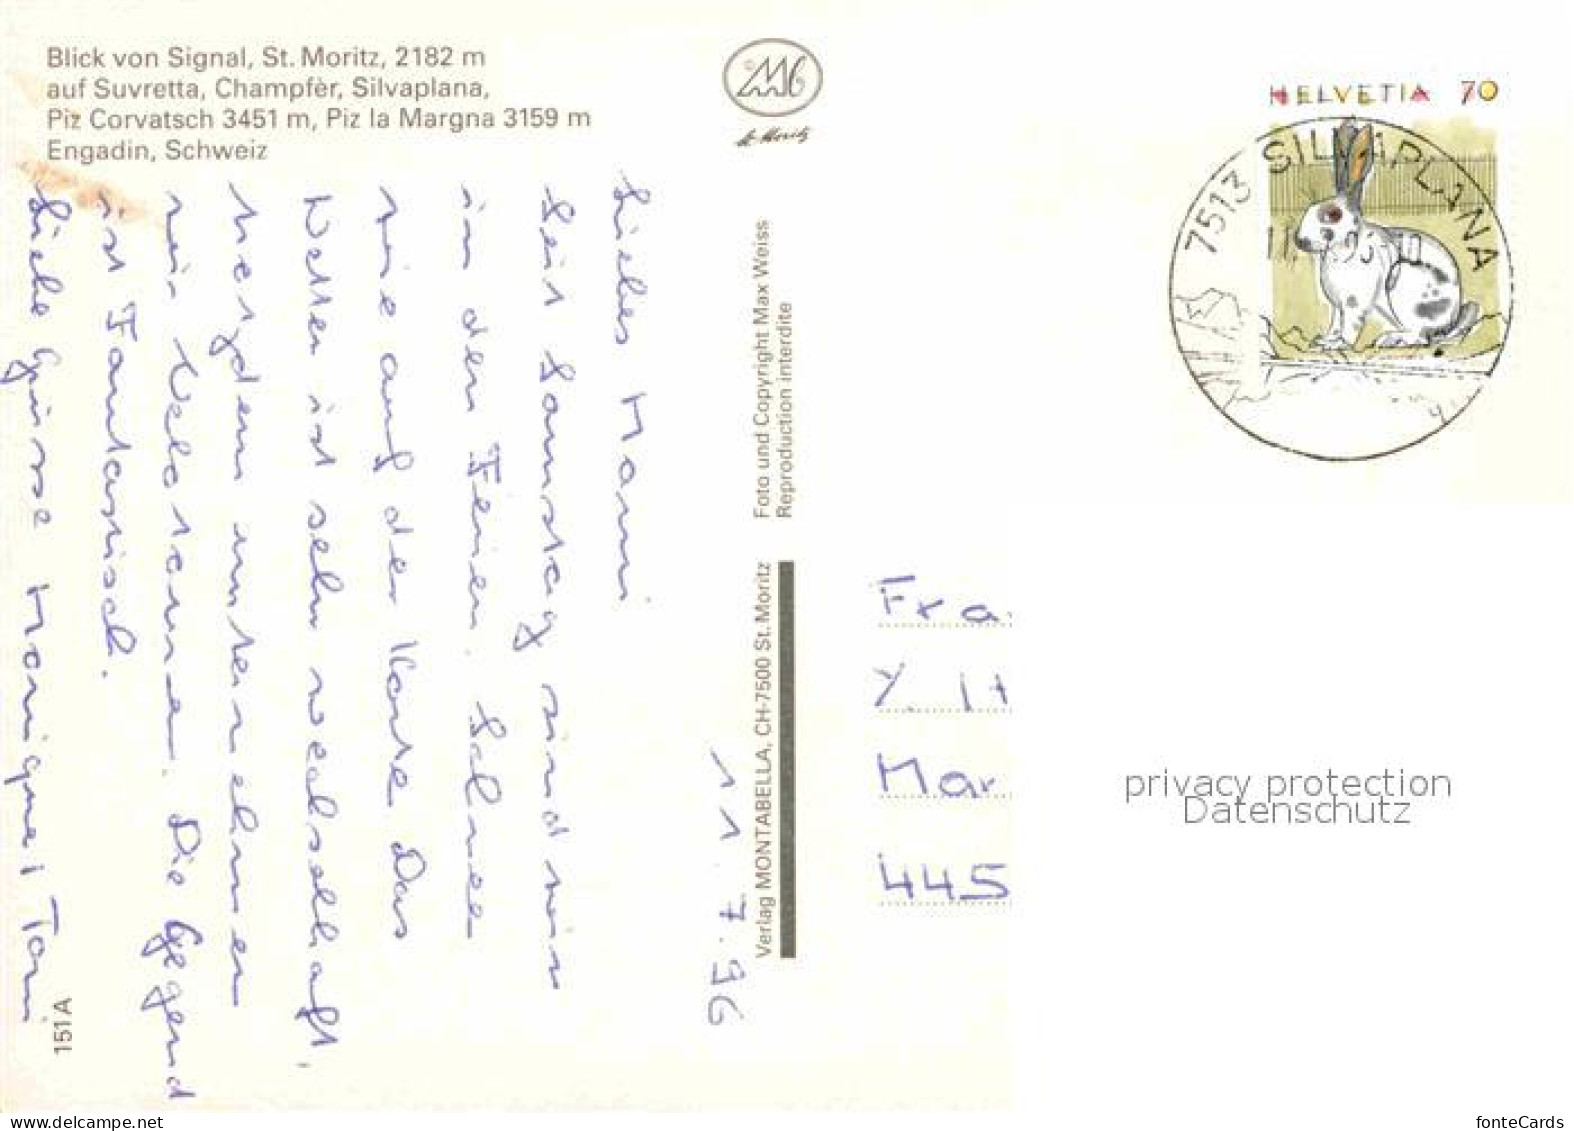 Blick von Signal, St. Moritz, 2182 m
auf Suvretta, Champfèr, Silvaplana,
Piz Corvatsch 3451 m, Piz la Margna 3159 m
Engadin, Schweiz
St. Moritz
HELVETIA 70
7513 SILVAPLANA
11.7.96
Liebes Mammi
Seit Samstag sind wir
in den Ferien. Schnee
wie auf der Karte Das
Wetter ist sehr wechselhaft,
trotzdem unternehmen
wir Velotouren. Die Gegend
ist Fantastisch.
Liebe Grüsse Monique + Toni
Foto und Copyright Max Weiss
Reproduction interdite
Verlag MONTABELLA, CH-7500 St. Moritz
151A
Fra
Y. It
Mar
445
privacy protection
Datenschutz
www.delcampe.net
fonteCards